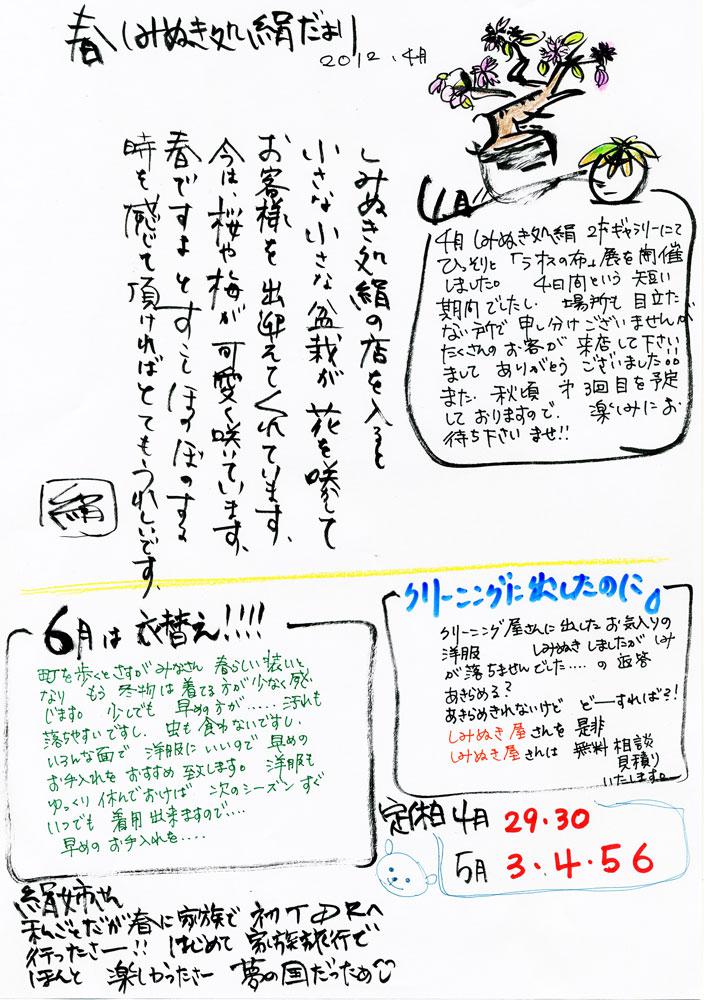 春 しみぬき処絹だより
2012.4月
しみぬき処絹の店を入ると
小さな小さな盆栽が花を咲かして
お客様を出迎えてくれています。
今は、桜や梅が可愛く咲いています。
春ですよとすこしほのぼのする
時を感じて頂ければとてもうれしいです。
絹
4月
4月 しみぬき処絹 2Fギャラリーにて
ひっそりと「ラオスの布」展を開催
しました。 4日間という 短い
期間でしたし 場所も 目立た
ない所で 申し分けございませんが
たくさんの お客が 来店して下さい
まして ありがとう ございました!!
また 秋頃 才3回目を予定
しておりますので、 楽しみにお
待ち下さい ませ!!
クリーニングに出したのに。
クリーニング屋さんに出した お気入りの
洋服 しみぬきしましたが しみ
が落ちませんでした.... の返答
あきらめる?
あきらめきれないけど どーすれば?!
しみぬき屋さんを 是非
しみぬき屋さんは 無料相談
見積り
いたします。
6月は衣替え!!!!
町を歩くとさすがみなさん 春らしい装いと
なり もう 冬物は着てる方が少なく感
じます。 少しでも 早めの方が.....汚れも
落ちやすいですし、虫も食わないですし、
いろんな面で 洋服にいいので 早めの
お手入れを おすすめ致します。 洋服も
ゆっくり休んでおけば 次のシーズンすぐ
いつでも 着用出来ますので....
早めの お手入れを....
定休日 4月 29.30
5月 3.4.5 6
絹姉さん
私ごとだが春に家族で 初TDRへ
行ったさー!! はじめて 家族旅行で
ほんと 楽しかったさー 夢の国だったぁ